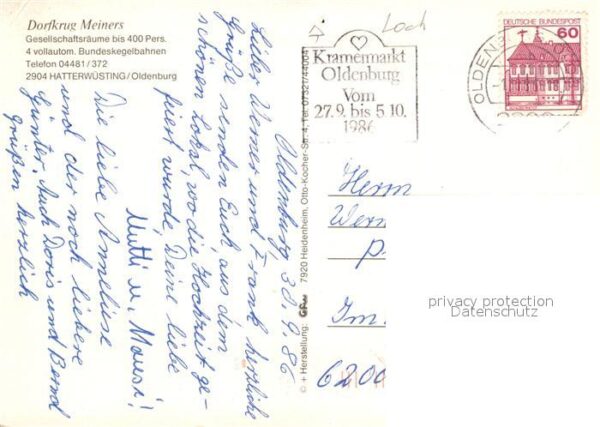 Dorfkrug Meiners
Gesellschaftsräume bis 400 Pers.
4 vollautom. Bundeskegelbahnen
Telefon 04481/372
2904 HATTERWÜSTING/Oldenburg
Oldenburg 38.9.86
Lieber Werner und Frank herzliche
Grüße senden Euch aus dem
schönen Lokal, wo die Hochzeit ge-
fiert wurde, Deine liebe
Mutti u. Mausi!
Die liebe Anneliese
und der noch liebere
Günter. Auch Doris und Bernd
grüßen herzlich
© + Herstellung:
7920 Heidenheim, Otto-Kocher-Str. 4, Tel. 07321/44004
Loch
Kramermarkt
Oldenburg
Vom
27.9. bis 5.10.
1986
OLDENB
DEUTSCHE BUNDESPOST
60
Herrn
Wern
Im
6200
privacy protection
Datenschutz